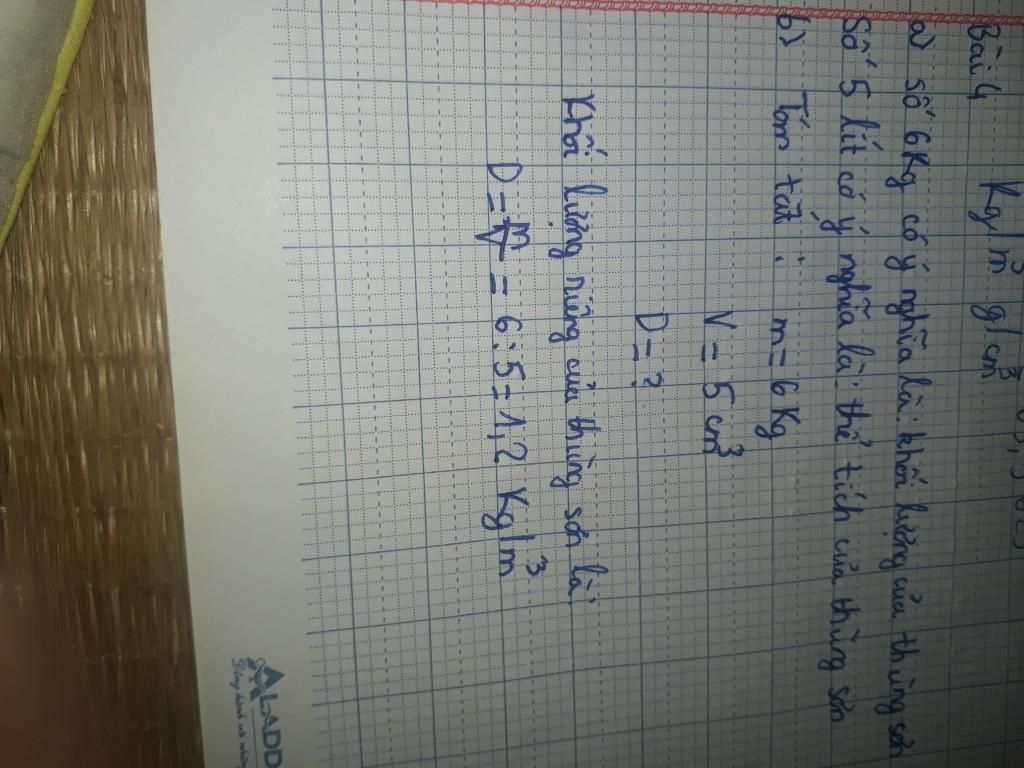 Bài 4 kg/m³ g/cm³
a) Số 6 Kg có ý nghĩa là: khối lượng của thùng sơn
Số 5 lít có ý nghĩa là: thể tích của thùng sơn
b) Tóm tắt: m = 6 Kg
V = 5 cm³
D = ?
Khối lượng riêng của thùng sơn là:
D = m/V = 6 : 5 = 1,2 Kg/m³
ALADD